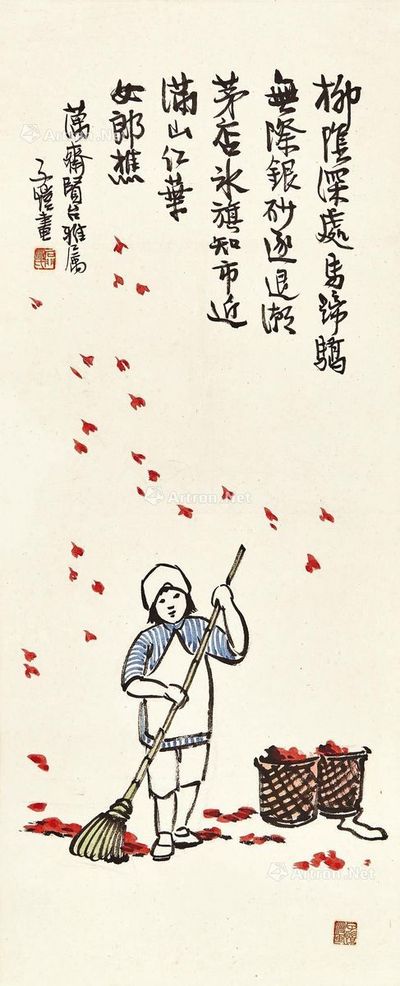 柳陰深處馬蹄驕
無際銀砂逐退潮
茅店冰旗知市近
滿山紅葉
女郎樵
萬齋賢台雅屬
子愷畫
Artron.Net
Artron.Net
Artron.Net